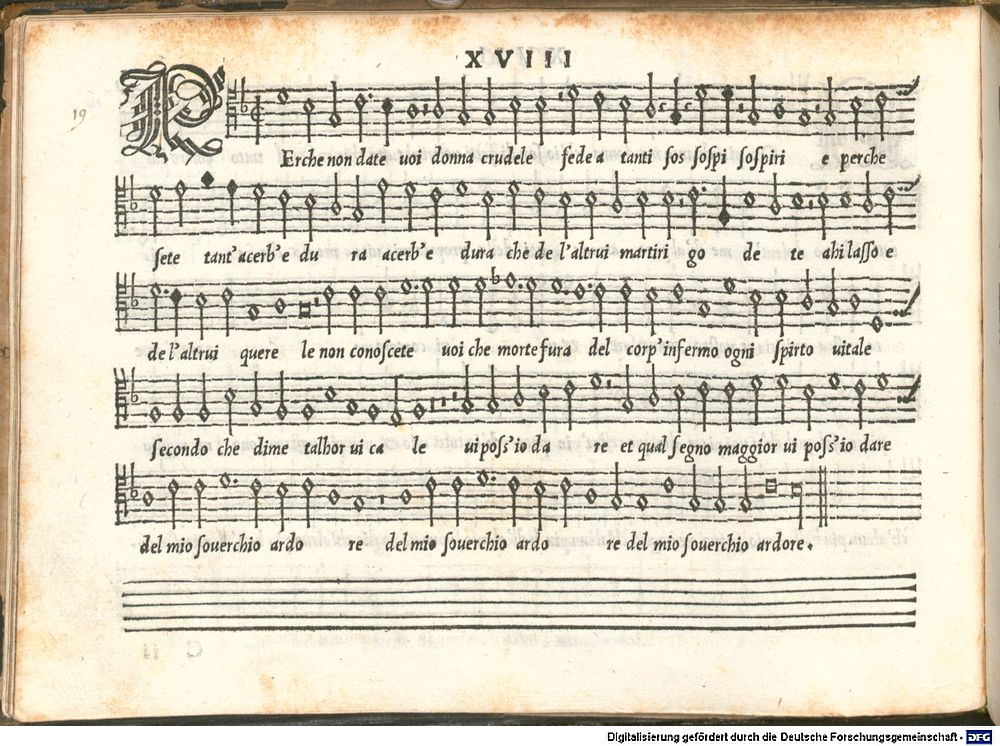 XVIII
19
PErche non date uoi donna crudele fede a tanti sos sospi sospiri e perche
sete tant'acerb'e du ra acerb'e dura che de l'altrui martiri go de te ahi lasso e
de l'altrui quere le non conoscete uoi che morte fura del corp'infermo ogni spirto uitale
secondo che di me talhor ui ca le ui poss'io da re et qual segno maggior ui poss'io dare
del mio souerchio ardo re del mio souerchio ardo re del mio souerchio ardore.
C ii
Digitalisierung gefördert durch die Deutsche Forschungsgemeinschaft - DFG